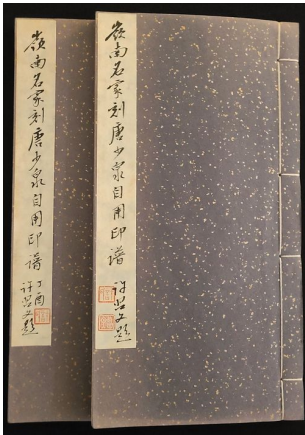 嶺南名家刻唐少泉自用印譜
許習文題
嶺南名家刻唐少泉自用印譜
丁酉
許習文題